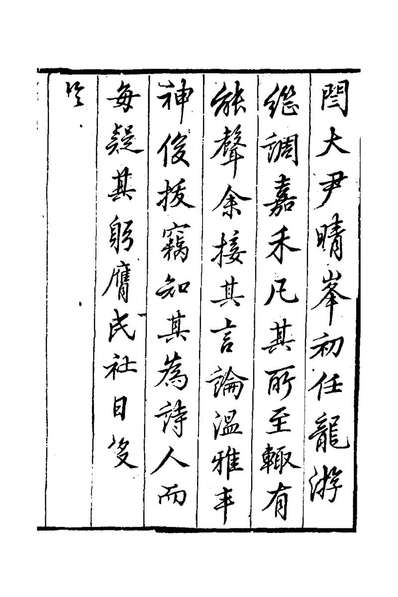 閆大尹晴峯初任龍游
繼調嘉禾凡其所至輙有
能聲余接其言論溫雅丰
神俊拔竊知其為詩人而
每疑其躬膺民社日夕